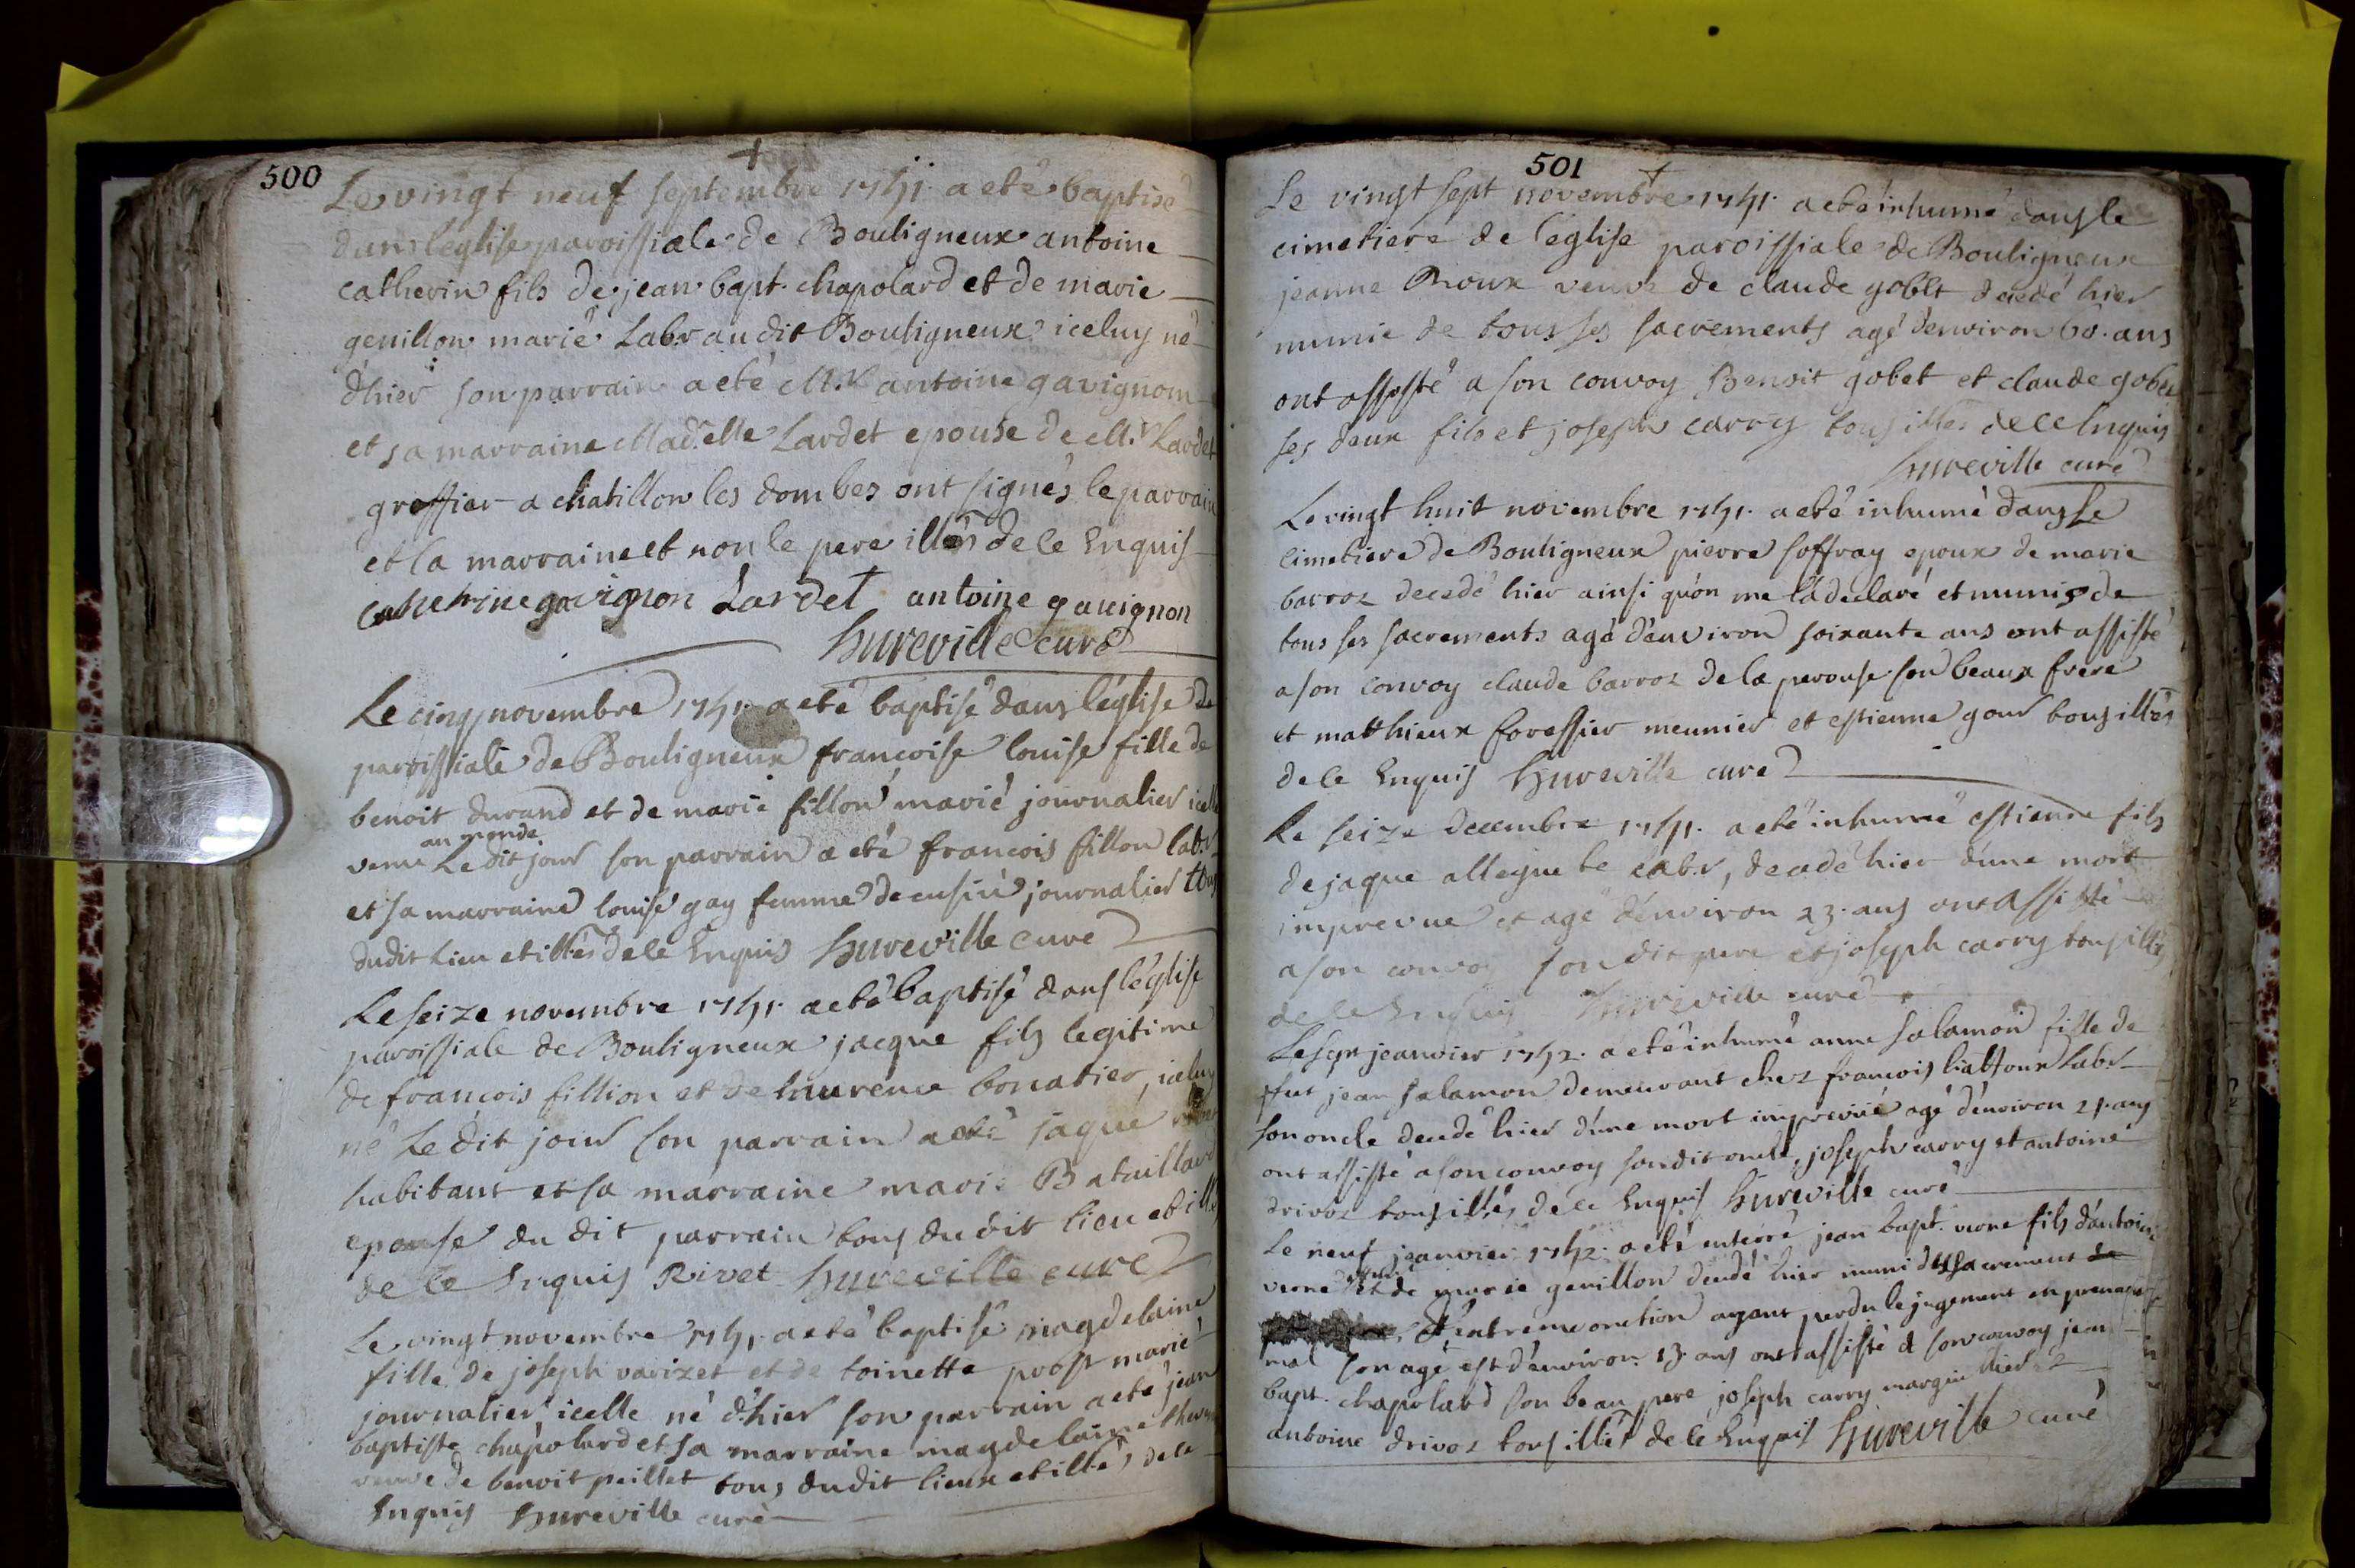 500
Le vingt neuf septembre 1741. a eté baptisé
dans leglise paroissiale de Bouligneux antoine
catherin fils de jean bapt. chapolard et de marie
genillon marié Labr audit Bouligneux iceluy né
d'hier son parrain a eté Mr antoine gavignon
et sa marraine Madelle Lardet epouse de Mr Lardet
greffier a chatillon les dombes ont signés le parrain
et la marraine et non le pere illés de ce Enquis
catherine gavignon Lardet antoine gauignon
hureville curé
Le cinq novembre 1741. a eté baptisé dans léglise de
paroissiale de Bouligneux francoise louise fille de
benoit durand et de marie fillon marié journalier icelle
au monde
venue Le dit jour son parrain a eté francois fillon labr.
et sa marraine louise gay femme de cusin journalier tous
dudit Lieu et illés de ce Enquis hureville curé
Le seize novembre 1741. a eté baptisé dans léglise
paroissiale de Bouligneux jacque fils legitime
de francois fillion et de laurence bonatier, iceluy
né Le dit jour son parrain a eté jaque
habitant et sa marraine marie Bataillard
epouse du dit parrain tous du dit lieu et illés
de ce Enquis Rivet hureville curé
Le vingt novembre 1741. a eté baptisé magdelaine
fille de joseph varizet et de toinette prost marié
journalier, icelle né d'hier son parrain a eté jean
baptiste chapolard et sa marraine magdelaine
veuve de benoit peillet tous dudit lieux et illés de ce
Enquis hureville curé
501
Le vingt sept novembre 1741. a eté inhumé dans le
cimetiere de l'église paroissiale de Bouligneux
jeanne Roux veuve de claude goblt decedé hier
munie de tous ses sacrements agé d'environ 60. ans
ont assisté a son convoy Benoit gobet et claude gobet
ses deux fils et joseph carry tous illés de ce Enquis
hureville curé
Le vingt huit novembre 1741. a eté inhumé dans le
cimetiere de Bouligneux pierre soffray epoux de marie
barroz decedé hier ainsi qu'on me la declaré et munis de
tous ses sacrements agé d'environ soixante ans ont assisté
a son convoy claude barroz de la perouse son beaux frere
et matthieux forestier meunier et estienne gour tous illés
de ce Enquis hureville curé
Le seize decembre 1741. a eté inhumé estienne fils
de jaque allegue te labr, decedé hier d'une mort
imprevue et agé d'environ 23. ans ont assisté
a son convoy son dit pere et joseph carry tous illés
de ce Enquis hureville curé
Le sept jeanvier 1742. a eté inhumé anne salamon fille de
fut jean salamon demeurant chez francois liattoux Labr
son oncle decedé hier d'une mort imprevue agé d'environ 21. ans
ont assisté a son convoy son dit oncle, joseph carry et antoine
drivoz tous illés de ce Enquis hureville curé
Le neuf jeanvier 1742. a eté enterré jean bapt. verne fils d'antoine
verne et de marie genillon decedé hier muni du sacrement de
l'extreme onction ayant perdu le jugement en prenant
mal son age est d'environ 13. ans ont assisté a son convoy jean
bapt. chapolard son beau pere joseph carry marguillier et
antoine drivoz tous illés de ce Enquis hureville curé